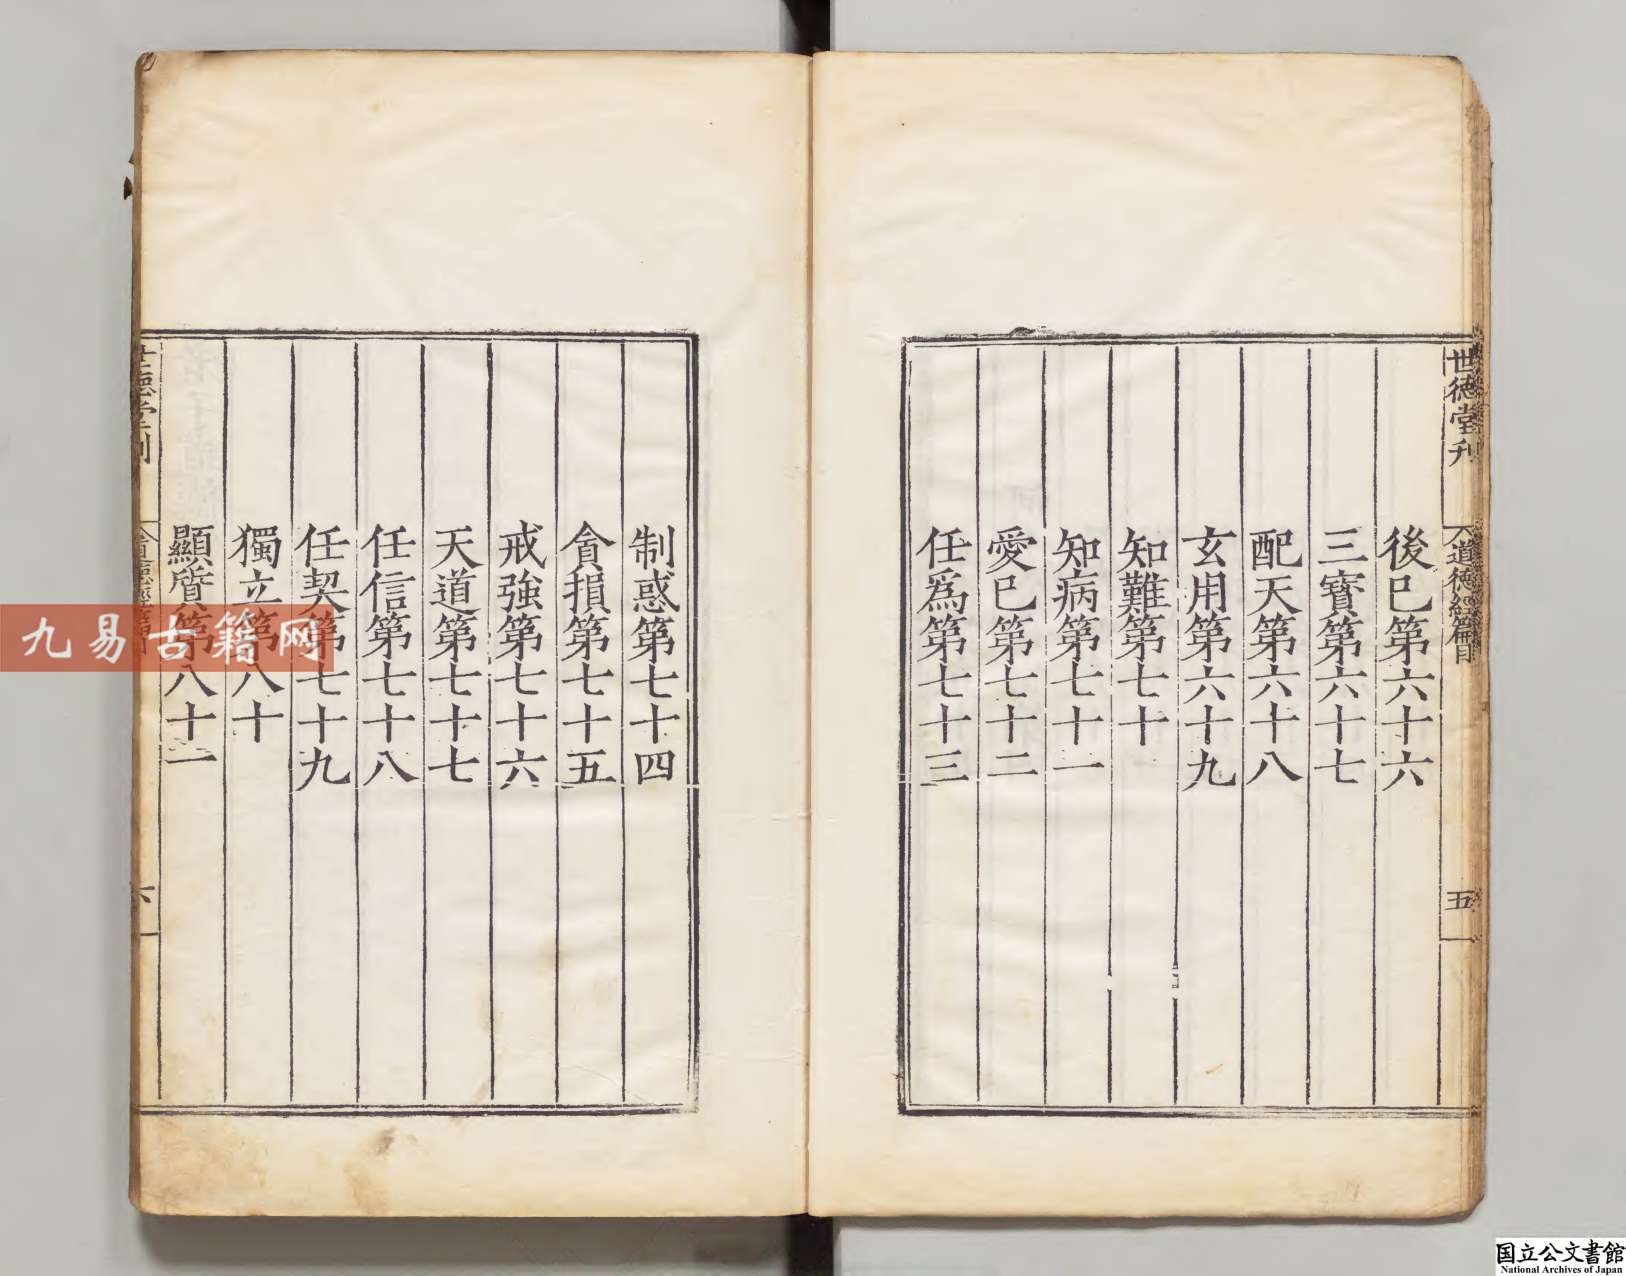 世德堂刊
道德經篇目
五
後已第六十六
三寳第六十七
配天第六十八
玄用第六十九
知難第七十
知病第七十一
愛已第七十二
任爲第七十三
制惑第七十四
貪損第七十五
戒強第七十六
天道第七十七
任信第七十八
任契第七十九
獨立第八十
顯質第八十一
六
九易古籍网
国立公文書館
National Archives of Japan